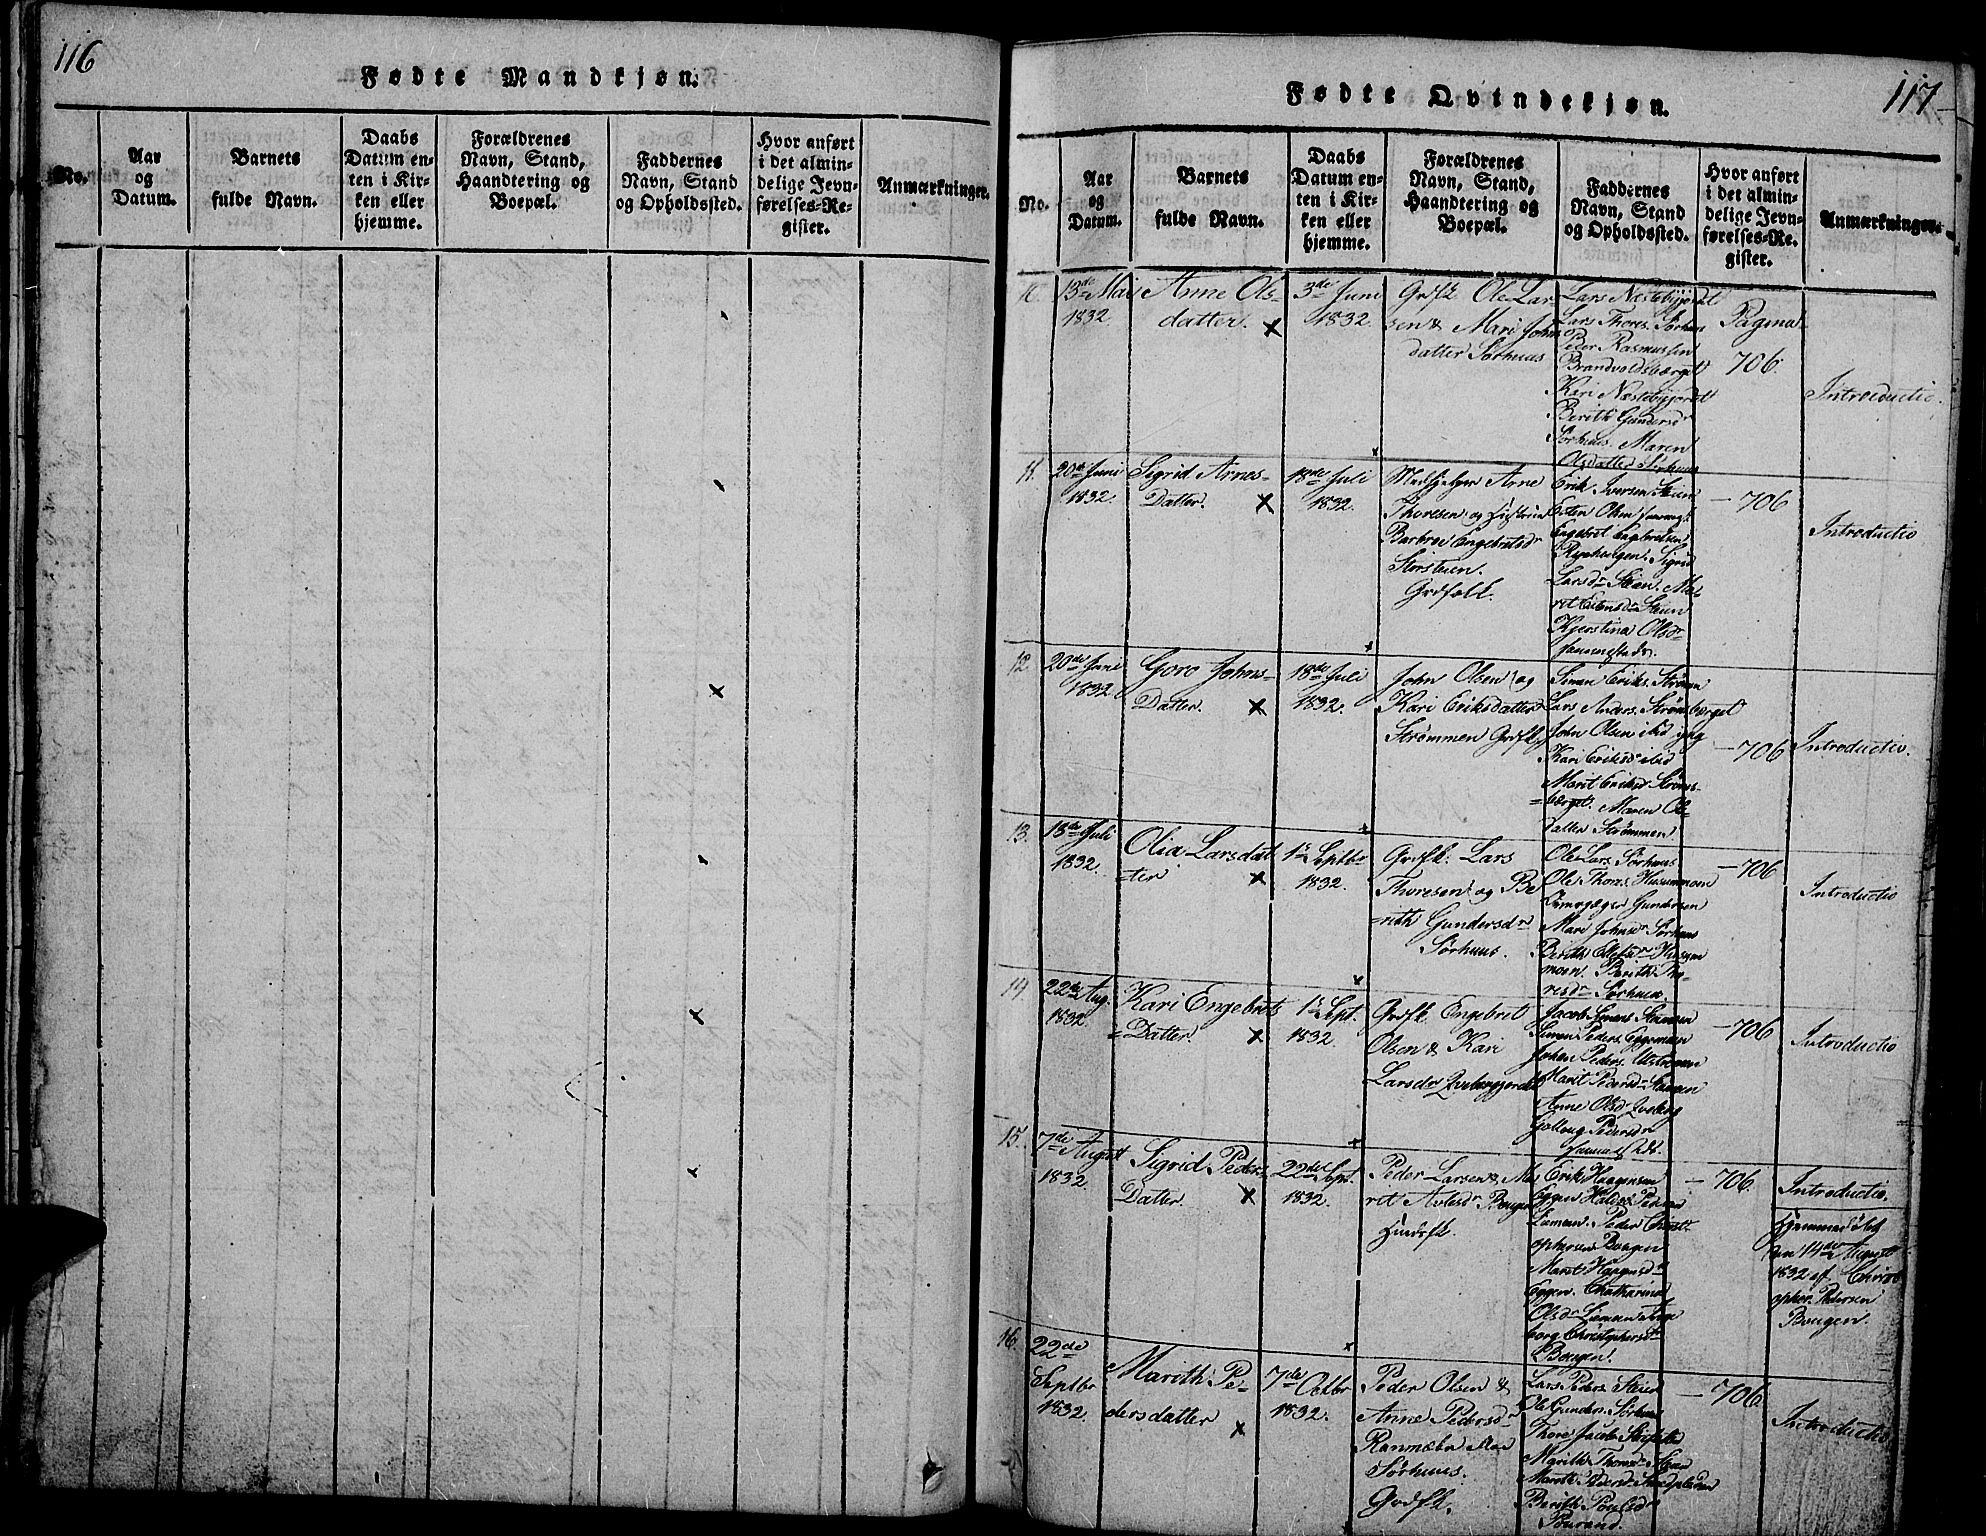 116
Fødte Mandkjøn.
No.
Aar
og
Datum.
Barnets
fulde Navn.
Daabs
Datum en-
ten i Kir-
ken eller
hjemme.
Forældrenes
Navn, Stand,
Haandtering og
Boepæl.
Faddernes
Navn, Stand
og Opholdssted.
Hvor anført
i det almin-
delige Jevn-
førelses-Re-
gister.
Anmærkninger.
117
Fødte Qvindekjøn.
No.
Aar
og
Datum.
Barnets
fulde Navn.
Daabs
Datum en-
ten i Kir-
ken eller
hjemme.
Forældrenes
Navn, Stand,
Haandtering og
Boepæl.
Faddernes
Navn, Stand
og Opholdssted.
Hvor anført
i det almin-
delige Jevn-
førelses-Re-
gister.
Anmærkninger.
13de Mai
1832.
Anne Ols-
datter.
3de Juni
1832.
Grdfk Ole Lar
sen & Mari Johns
datter Sørhuus
Lars Næstebyjordet
Lars Thores. Sørhuus
Peder Rasmussen
Brandvoldsbærget
Kari Næstebyjordet
Berith Gundersdr
Sørhuus. Maren
Olsdatter Sørhuus
Pagina
706.
Introductio.
11.
20de Juni
1832.
Sigrid Arnes-
Datter.
18de Juli
1832.
Arne
Thoresen og
Barbroe Engebretsdr
Storsteen.
Grdfolk.
Erik Iversen Steen
Esten Olsen
Engebret Engebretsen
Sigrid
Larsdr Steen. Ma-
rit Estensdr Steen
Kjerstina Olsdr
706
Introductio
12
20de Juni
1832
Goro Johns-
Datter.
18de Juli
1832.
John Olsen og
Kari Eriksdatter
Strømmen Grdfk.
Simen Eriks. Strømen
Lars Anders. Strømsbærget
John Olsen ibid
Kari Eriksdr ibid
Marit Eriksd Strøms-
=bærget. Maren Ol-
datter Strømmen
706
Introductio.
13.
18de Juli
1832.
Olia Larsdat
=ter
1ste Septbr
1832.
Grdfk. Lars
Thoresen og Be
=rith Gundersdr
Sørhuus.
Ole Lars. Sørhuus
Ole Thores. Husummoen
Gundersen
Mari Johnsdr Sørhuus
Berith Husum
moen. Berith Tho-
resdr Sørhuus.
706
Introductio
14
22de Aug.
1832
Kari Engebrets
=Datter.
1ste Sept.
1832.
Grdfk Engebret
Olsen & Kari
Larsdr Qvebergjordet
Jacob Simens.
Simen Peders. Eggemoen
Johan Peders.
Marit Pedersdr
Anne Olsdr Qveberg
Golloug Pedersdr
706
Introductio
15.
7de August
1832.
Sigrid Peders
Datter.
22de Sept.
1832.
Peder Larsen & Ma
rit Bougen
Huusfk.
Erik Haagensen
Eggen Peders
Peder Christ-
ophersen Bougen
Marit Haagensdr
Eggen. Chatharina
Olsdr
borg Christophersdr
Bougen.
706
Introductio.
Hjemmedøbt
den 14de August
1832 af Christ
opher Pedersen
Bougen.
16.
22de
Septbr
1832.
Marith Pe-
dersdatter
7de Octbr
1832.
Peder Olsen &
Anne Pedersdr
Sørhuus.
Grdfk.
Lars Peders. Steen
Ole Gunders. Sørhuus
Thore Jacobs.
Marith Thoresdr Steen
Berith Poulsdr
706
Introductio